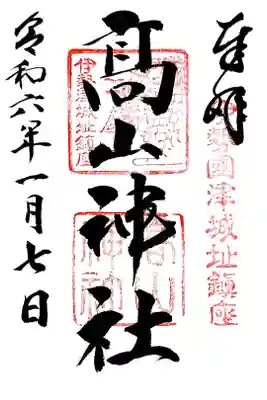 奉拝
勢國津城址鎮座
髙山神社
伊勢津城址鎮座
令和六年一月七日